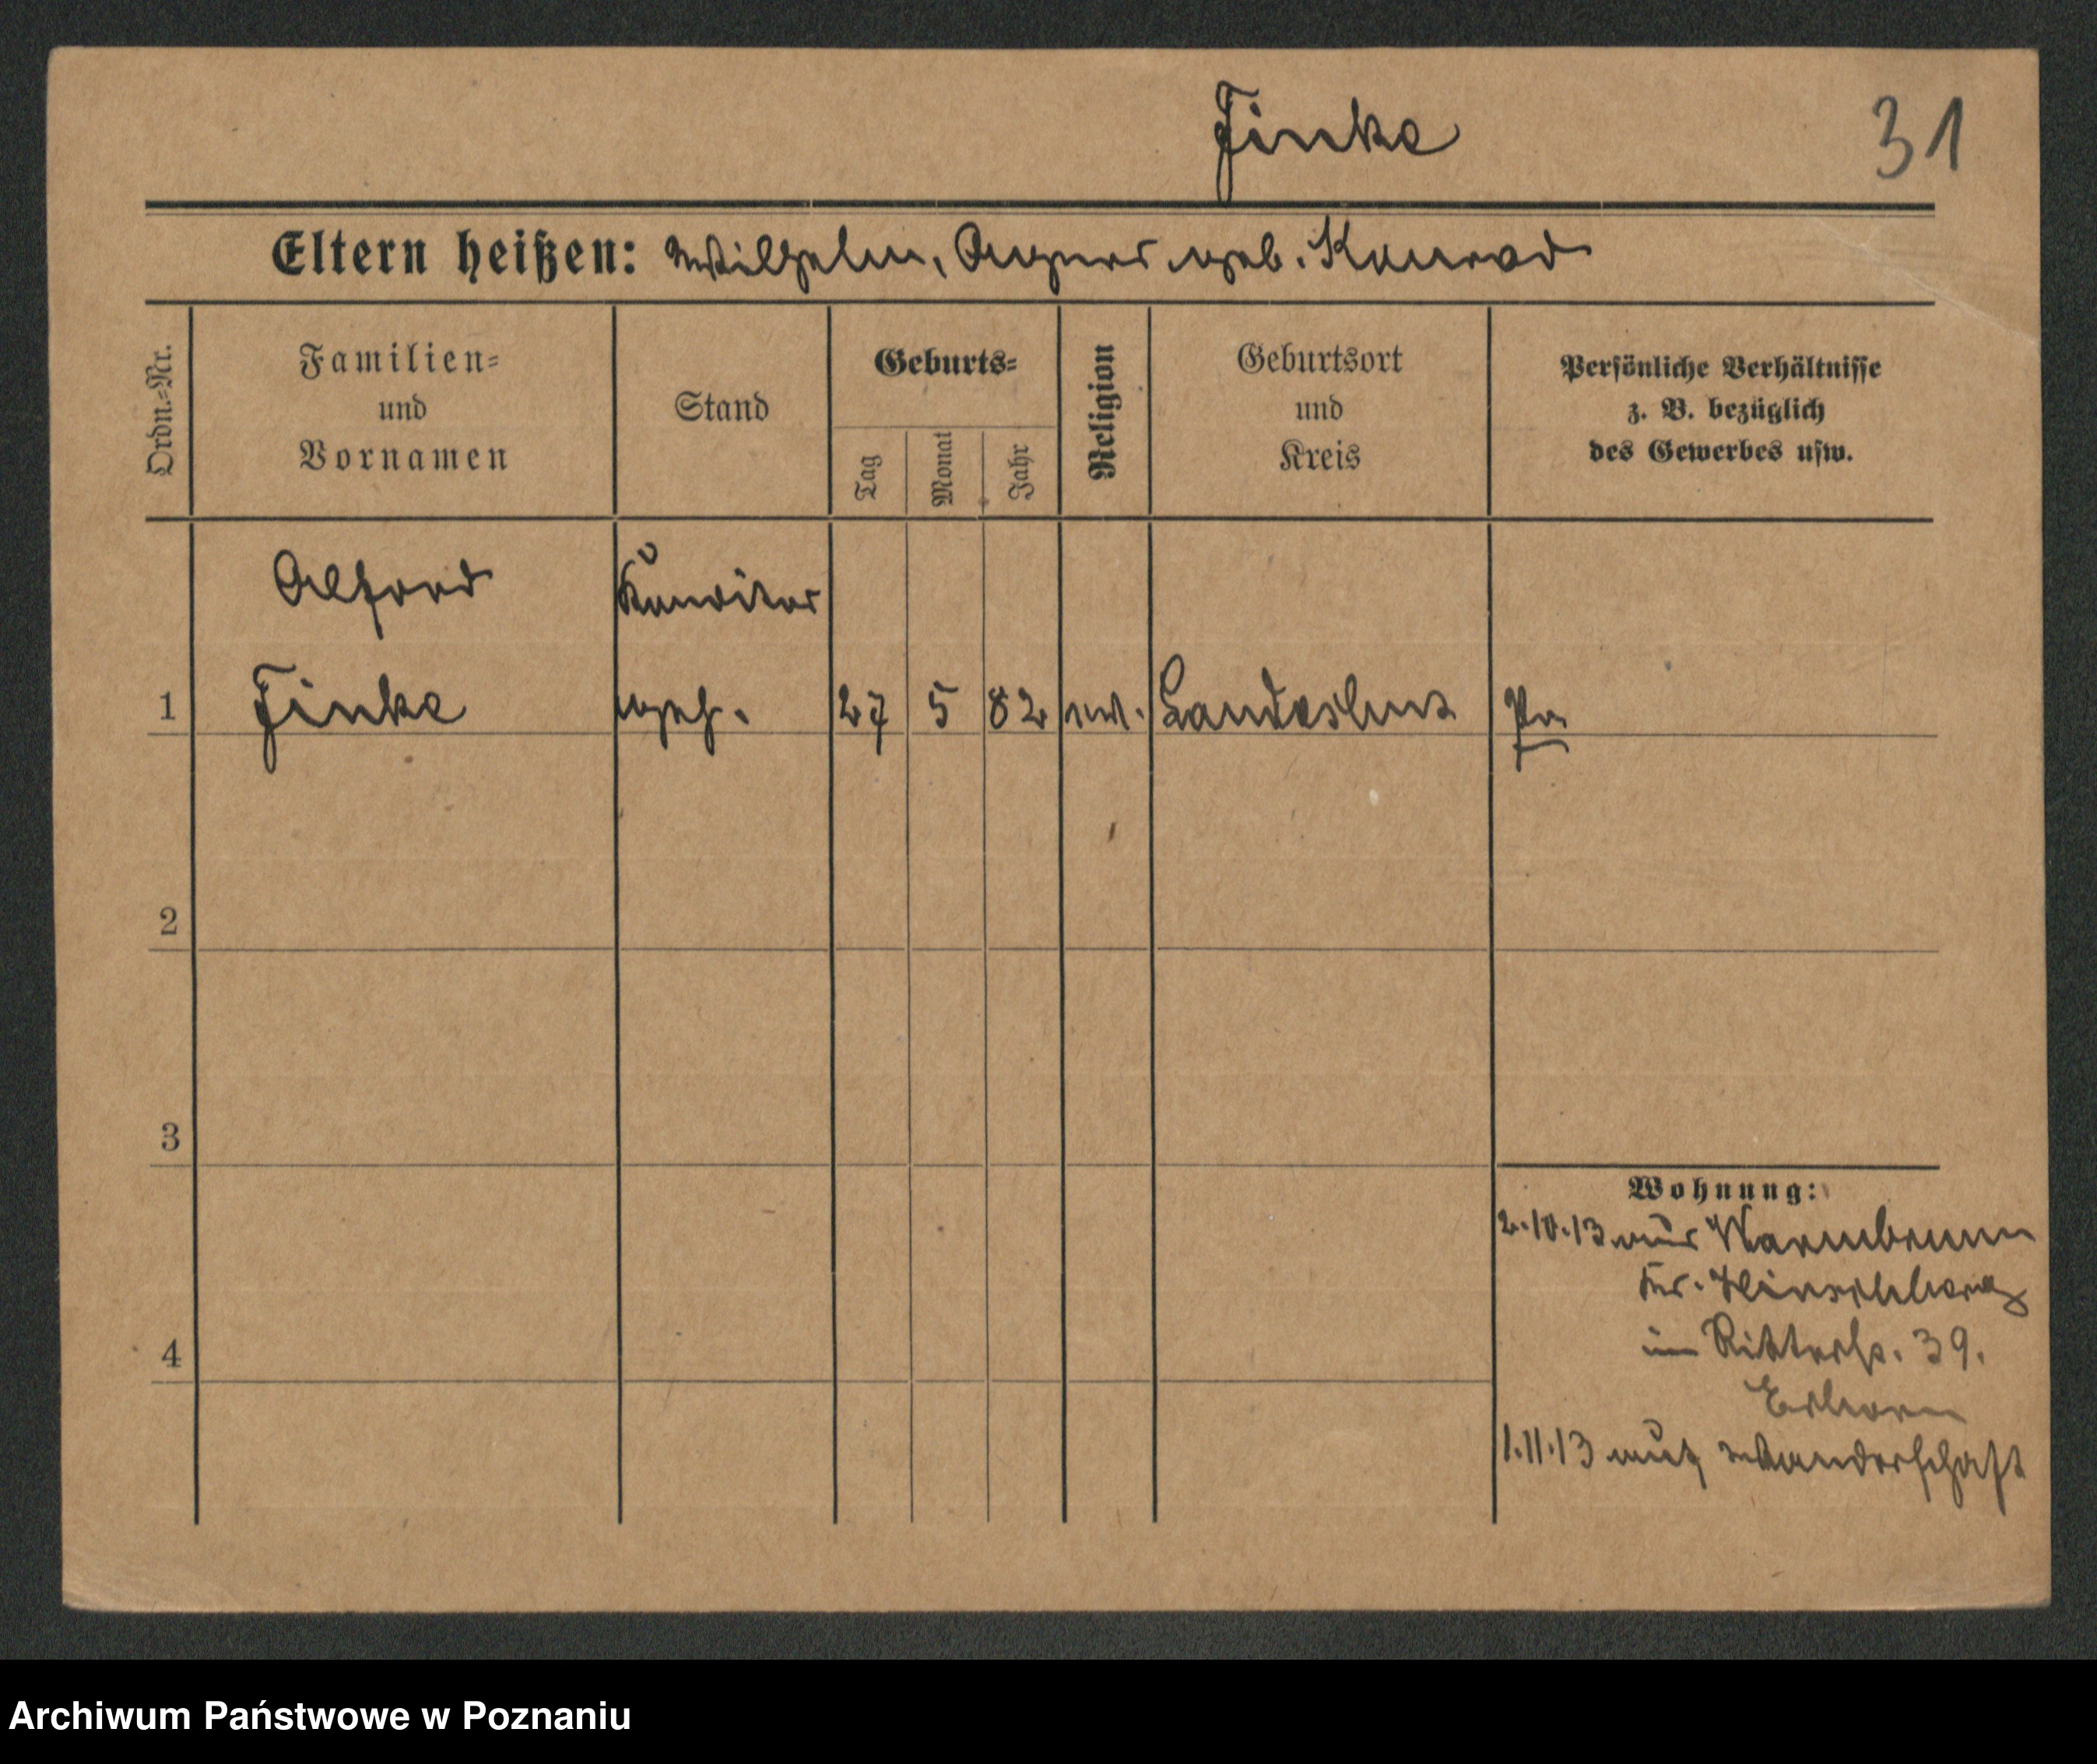 Finke
31
Eltern heißen: Wilhelm, Agnes geb. Konrad
Ordn.-Nr.
Familien-
und
Vornamen
Stand
Geburts-
Tag
Monat
Jahr
Religion
Geburtsort
und
Kreis
Persönliche Verhältnisse
z. B. bezüglich
des Gewerbes usw.
Alfred
Konditor
1
Finke
geh.
27
5
82
ev.
Landeshut
Pr
2
3
Wohnung:
2.10.13 aus Warmbrunn
Kr. Hirschberg
in Ritterstr. 39.
4
1.11.13 auf Wanderschaft
Archiwum Państwowe w Poznaniu